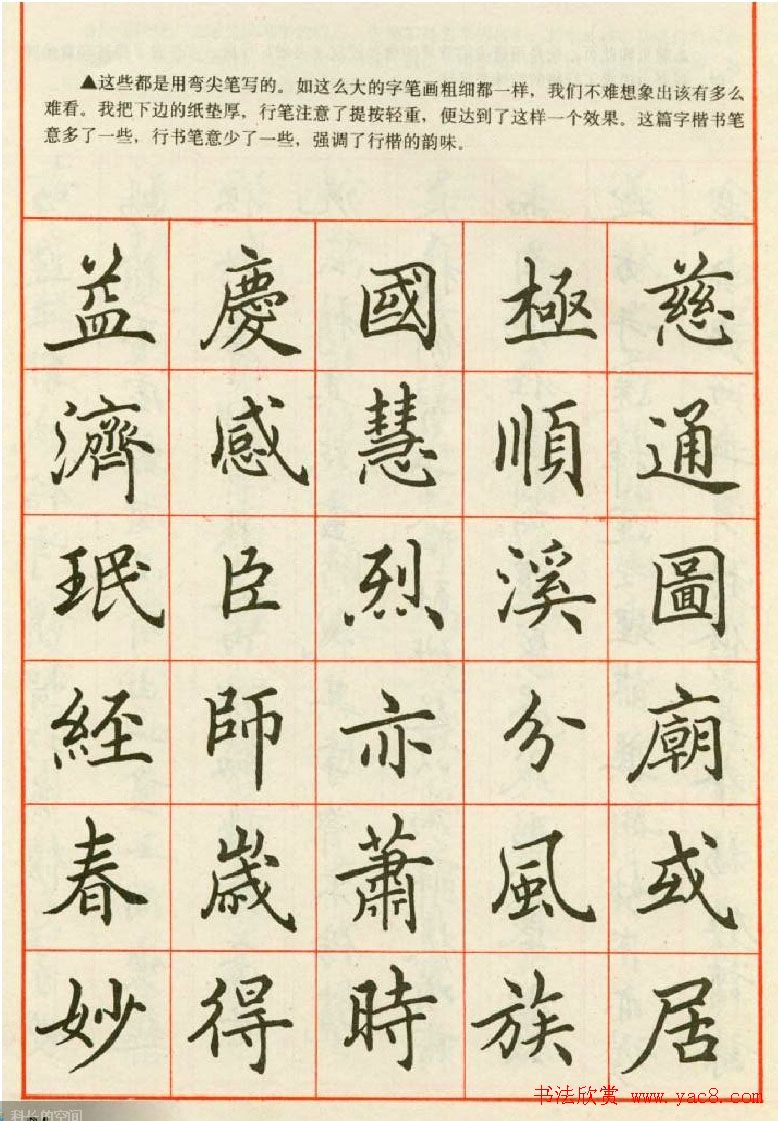 ▲这些都是用弯尖笔写的。如这么大的字笔画粗细都一样，我们不难想象出该有多么
难看。我把下边的纸垫厚，行笔注意了提按轻重，便达到了这样一个效果。这篇字楷书笔
意多了一些，行书笔意少了一些，强调了行楷的韵味。
慈通圖廟或居
極順溪分風族
國慧烈亦蕭時
慶感臣師歲得
益濟珉經春妙
书法欣赏 www.yac8.com
科长的空间